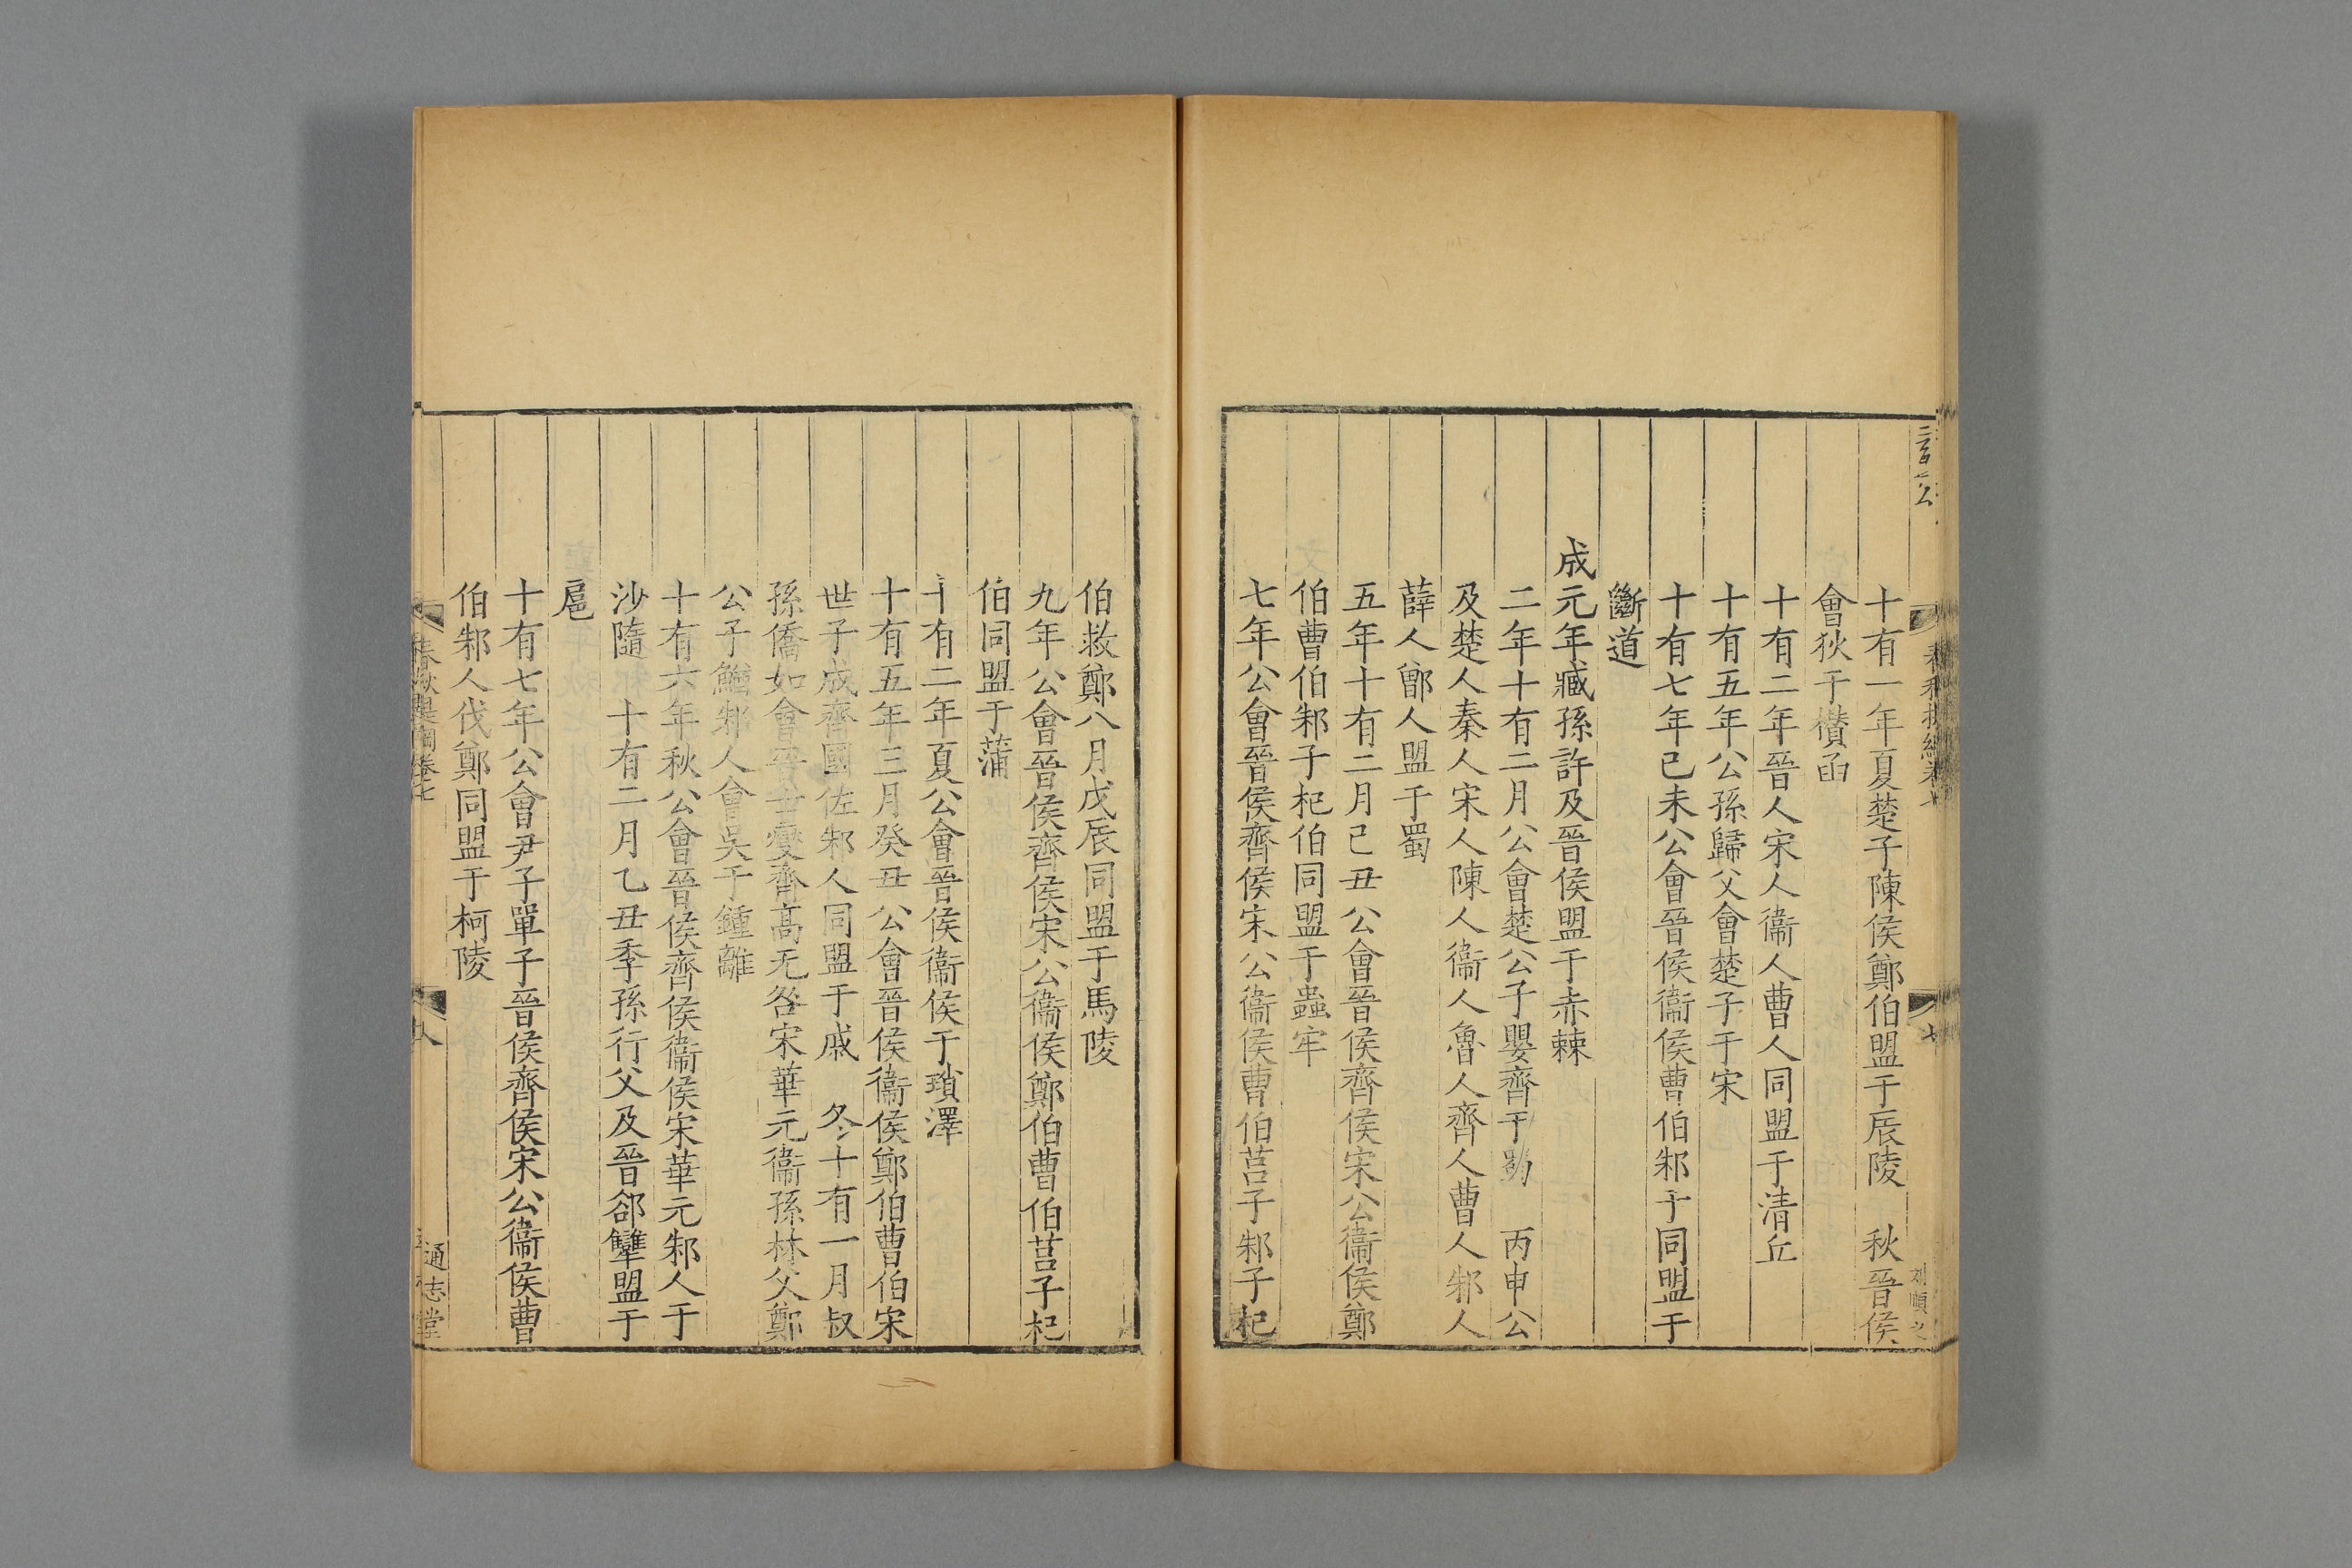 十有一年夏楚子陳侯鄭伯盟于辰陵　秋晉侯
會狄于欑函
十有二年晉人宋人衞人曹人同盟于清丘
十有五年公孫歸父會楚子于宋
十有七年已未公會晉侯衞侯曹伯邾子同盟于
斷道
成元年臧孫許及晉侯盟于赤棘
二年十有二月公會楚公子嬰齊于蜀　丙申公
及楚人秦人宋人陳人衞人魯人齊人曹人邾人
薛人鄫人盟于蜀
五年十有二月己丑公會晉侯齊侯宋公衞侯鄭
伯曹伯邾子杞伯同盟于蟲牢
七年公會晉侯齊侯宋公衞侯曹伯莒子邾子杞
伯救鄭八月戊辰同盟于馬陵
九年公會晉侯齊侯宋公衞侯鄭伯曹伯莒子杞
伯同盟于蒲
十有二年夏公會晉侯衞侯于瑣澤
十有五年三月癸丑公會晉侯衞侯鄭伯曹伯宋
世子成齊國佐邾人同盟于戚　冬十有一月叔
孫僑如會晉士燮齊高无咎宋華元衞孫林父鄭
公子鰌邾人會吳于鍾離
十有六年秋公會晉侯齊侯衞侯宋華元邾人于
沙隨　十有二月乙丑季孫行父及晉郤犨盟于
扈
十有七年公會尹子單子晉侯齊侯宋公衞侯曹
伯邾人伐鄭同盟于柯陵
通志堂